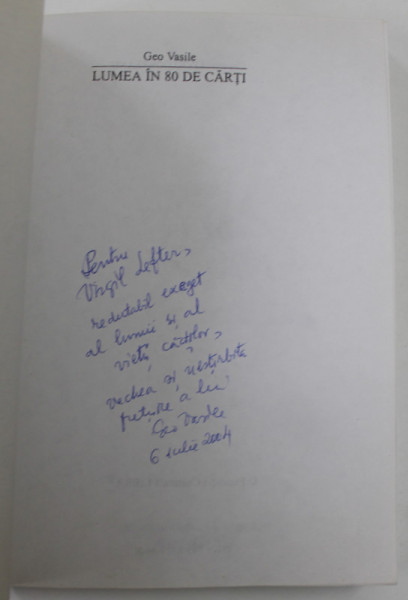 Geo Vasile
LUMEA ÎN 80 DE CĂRȚI
Pentru
Virgil Lefter,
redutabil exeget
al lumii și al
vieții cărților,
vechea și nestirbita
prețuire a lui
Geo Vasile
6 iulie 2004